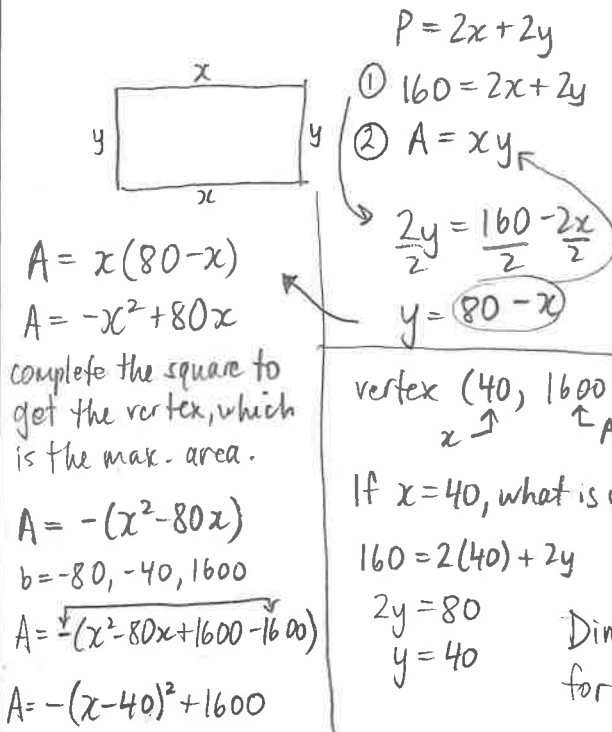 P = 2x + 2y
① 160 = 2x + 2y
② A = xy
x
y
y
x
2y/2 = 160/2 - 2x/2
y = 80 - x
A = x(80 - x)
A = -x² + 80x
complete the square to
get the vertex, which
is the max. area.
A = -(x² - 80x)
b = -80, -40, 1600
A = -(x² - 80x + 1600 - 1600)
A = -(x - 40)² + 1600
vertex (40, 1600
x
If x = 40, what is
160 = 2(40) + 2y
2y = 80
y = 40
for